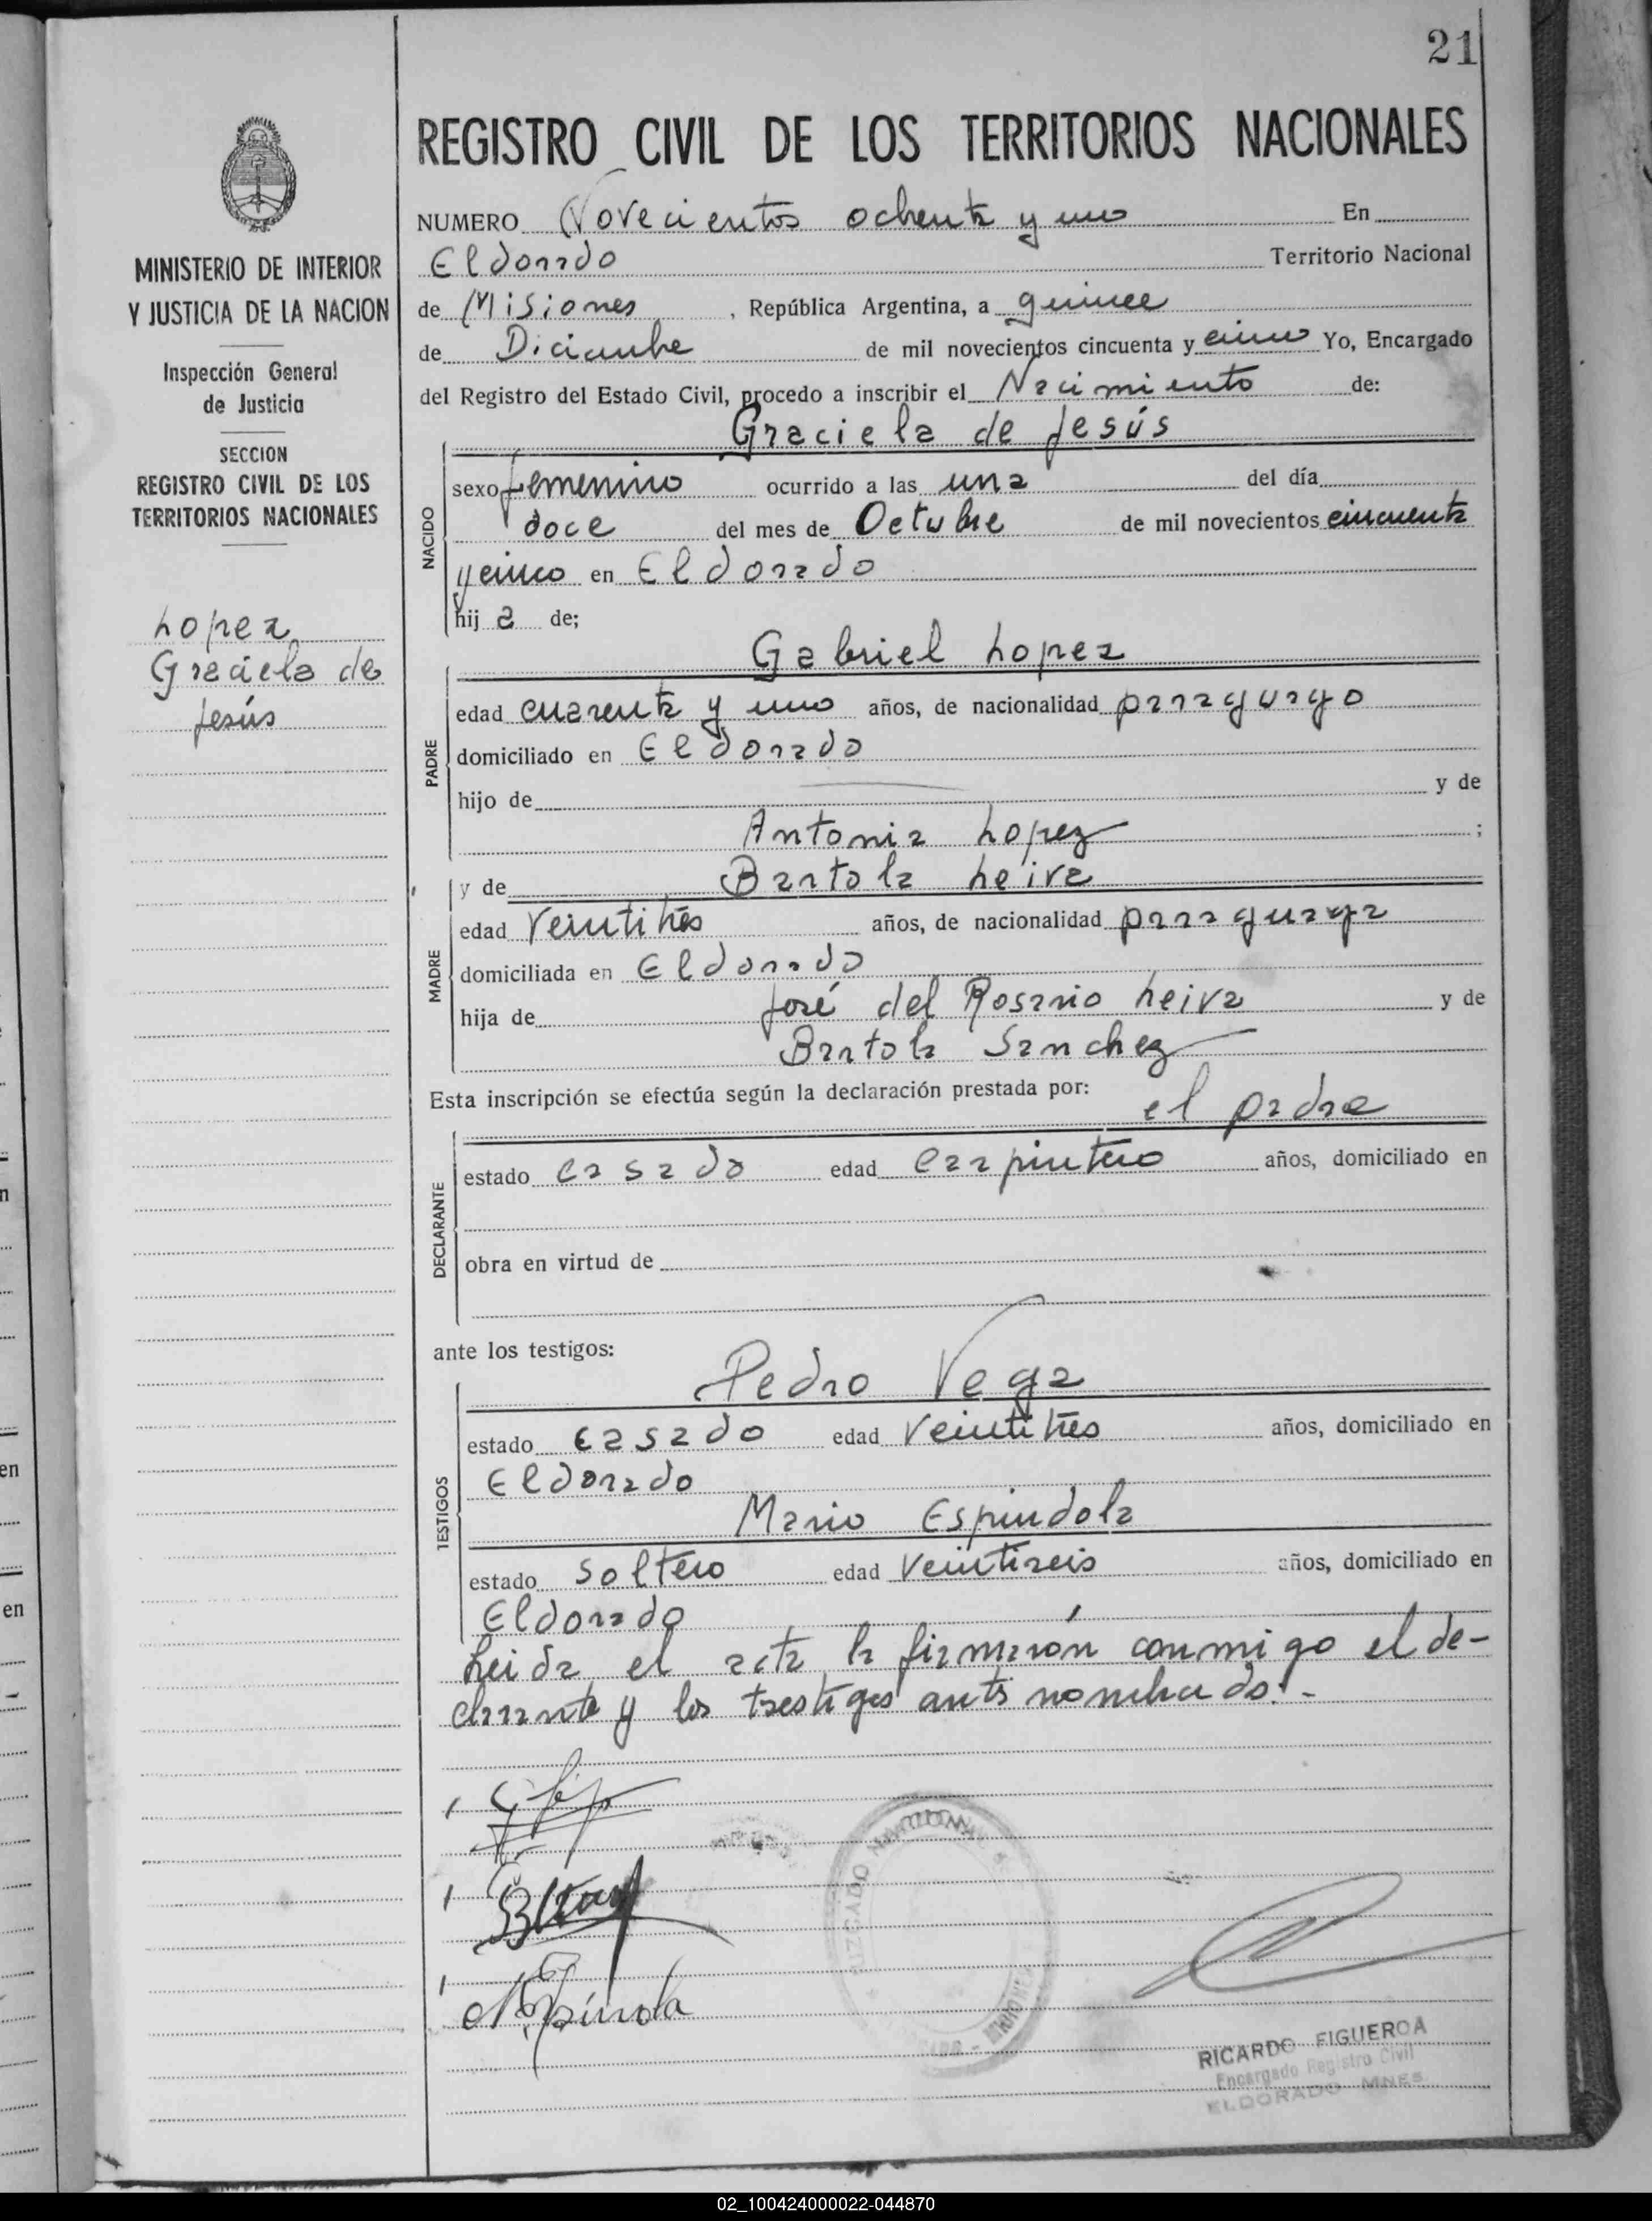 21
REGISTRO CIVIL DE LOS TERRITORIOS NACIONALES
MINISTERIO DE INTERIOR
Y JUSTICIA DE LA NACION
Inspección General
de Justicia
SECCION
REGISTRO CIVIL DE LOS
TERRITORIOS NACIONALES
Lopez
Graciela de
Jesús
NUMERO Novecientos ochenta y uno En
Eldorado Territorio Nacional
de Misiones, República Argentina, a quince
de Diciembre de mil novecientos cincuenta y cinco Yo, Encargado
del Registro del Estado Civil, procedo a inscribir el Nacimiento de:
Graciela de Jesús
NACIDO
sexo femenino ocurrido a las una del día
doce del mes de Octubre de mil novecientos cincuenta
y cinco en Eldorado
hij a de;
Gabriel Lopez
PADRE
edad cuarenta y uno años, de nacionalidad paraguayo
domiciliado en Eldorado
hijo de y de
Antonia Lopez ;
y de Bartola Leiva
MADRE
edad veintitrés años, de nacionalidad paraguaya
domiciliada en Eldorado
hija de José del Rosario Leiva y de
Bartola Sanchez
Esta inscripción se efectúa según la declaración prestada por: el padre
DECLARANTE
estado casado edad carpintero años, domiciliado en
obra en virtud de
ante los testigos:
Pedro Vega
TESTIGOS
estado casado edad veintitrés años, domiciliado en
Eldorado
Mario Espindola
estado soltero edad veintiseis años, domiciliado en
Eldorado
Leida el acta la firmarón conmigo el de-
clarante y los testigos ants nombrados.-
JUZGADO NACIONAL
MISIONES
M Espínola
RICARDO FIGUEROA
Encargado Registro Civil
ELDORADO MNES.
en
en
02_100424000022-044870